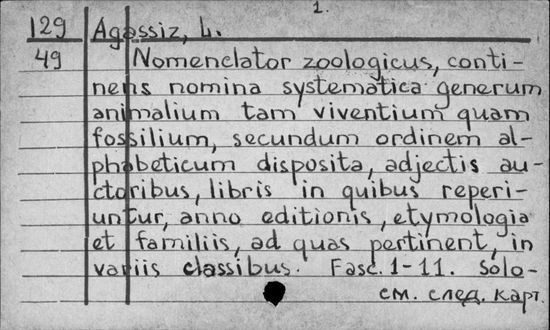 1.
129 Agassiz, L.
49 Nomenclator zoologicus, conti-
nens nomina systematica generum
animalium tam viventium quam
fossilium, secundum ordinem al-
phabeticum disposita, adjectis au-
ctoribus, libris in quibus reperi-
untur, anno editionis, etymologia
et familiis, ad quas pertinent, in
variis classibus. Fasc. 1-11. Solo-
см. след. карт.